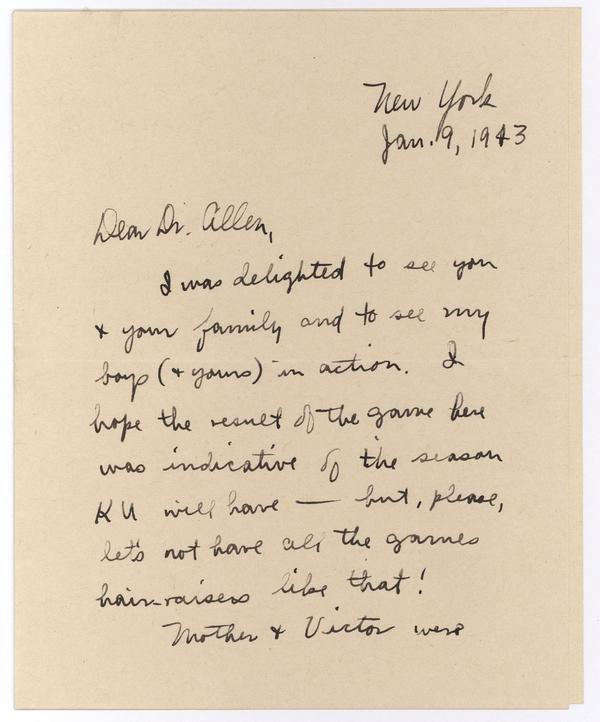 New York
Jan. 9, 1943
Dear Dr. Allen,
I was delighted to see you
& your family and to see my
boys (& yours) in action. I
hope the result of the game here
was indicative of the season
KU will have — but, please,
let's not have all the games
hair-raisers like that!
Mother & Victor were